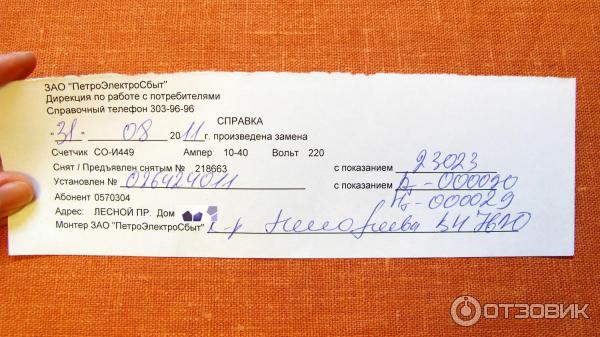 ЗАО "ПетроЭлектроСбыт"
Дирекция по работе с потребителями
Справочный телефон 303-96-96
СПРАВКА
"31" 08 2011г. произведена замена
Счетчик СО-И449 Ампер 10-40 Вольт 220
Снят / Предъявлен снятым № 218663 с показанием 23023
Установлен № 026424011 с показанием - 000020
Абонент 0570304 - 000029
Адрес: ЛЕСНОЙ ПР. Дом
Монтер ЗАО "ПетроЭлектроСбыт"
ОТЗОВИК